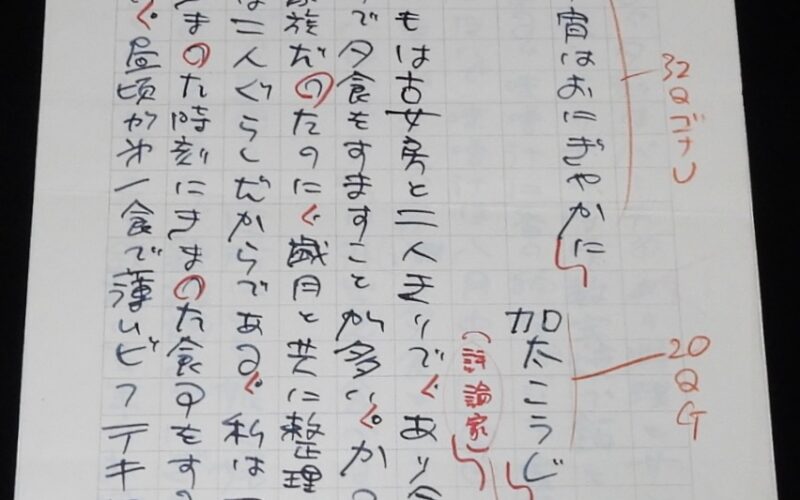 32QゴナU
宵はおにぎやかに
20QG
加太こうじ
(評論家)
もは古女房と二人きりで、あり
で夕食をすますことが多い。か
族だったのに、歳月と共に整理
は二人ぐらしだからである。私は
まった時刻にきまった食事をす
、昼頃が第一食で薄いビフテキ